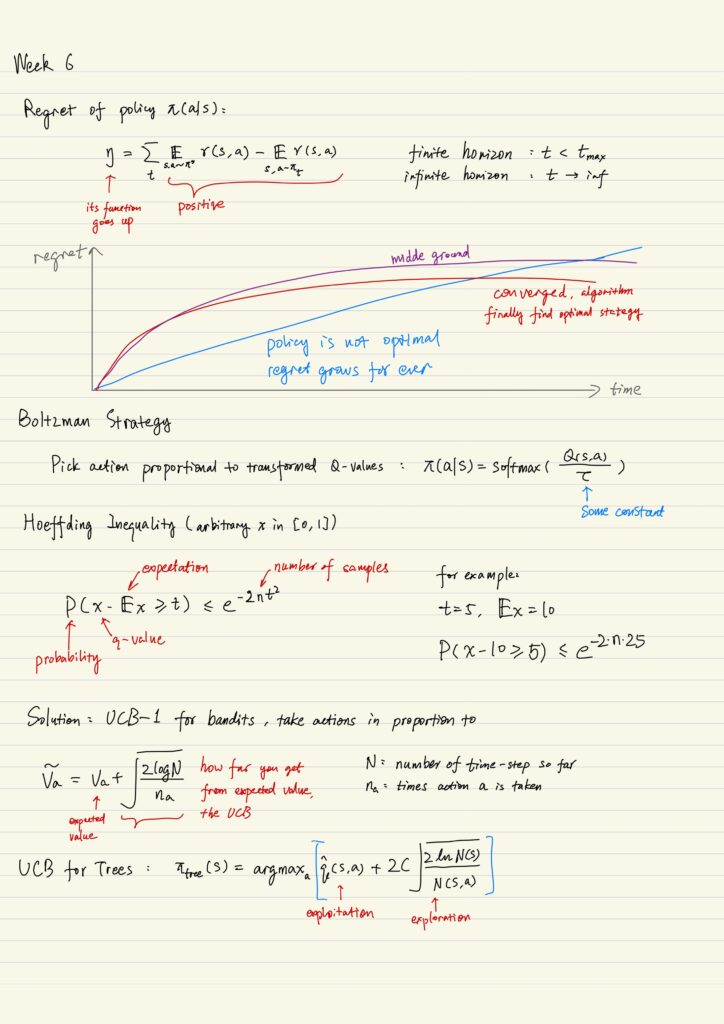 Week 6
Regret of policy π(a|s):
η = Σ_t 𝔼_{s,a~π*} r(s,a) − 𝔼_{s,a~π_t} r(s,a)
finite horizon : t < t_max
infinite horizon : t → inf
its function goes up
positive
regret
midde ground
converged, algorithm
finally find optimal stategy
policy is not optimal
regret grows for ever
time
Boltzman Strategy
Pick action proportional to transformed Q-values : π(a|s) = softmax( Q(s,a) / τ )
Some constant
Hoeffding Inequality (arbitrary x in [0,1])
expectation
number of samples
P(x − 𝔼x ⩾ t) ≤ e^{−2nt²}
q-value
probability
for example:
t=5, 𝔼x = 10
P(x−10 ⩾ 5) ≤ e^{−2·n·25}
Solution: UCB-1 for bandits, take actions in proportion to
Ṽa = Va + √(2logN / na)
how far you get
from expected value,
the UCB
N: number of time-step so far
na: times action a is taken
expected
value
UCB for Trees : π_tree(s) = argmax_a [ q̂(s,a) + 2C √(2 ln N(s) / N(s,a)) ]
exploitation
exploration